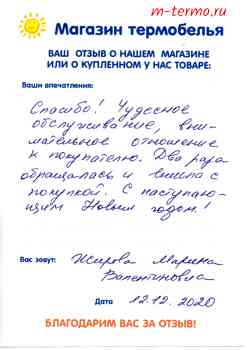 m-termo.ru
Магазин термобелья
ВАШ ОТЗЫВ О НАШЕМ МАГАЗИНЕ
ИЛИ О КУПЛЕННОМ У НАС ТОВАРЕ:
Ваши впечатления:
Спасибо! Чудесное
обслуживание, вни-
мательное отношение
к покупателю. Два раза
обращалась и вышла с
покупкой. С наступаю-
щим Новым годом!
Вас зовут: Жирова Марина
Валентиновна
Дата 12.12.2020
БЛАГОДАРИМ ВАС ЗА ОТЗЫВ!